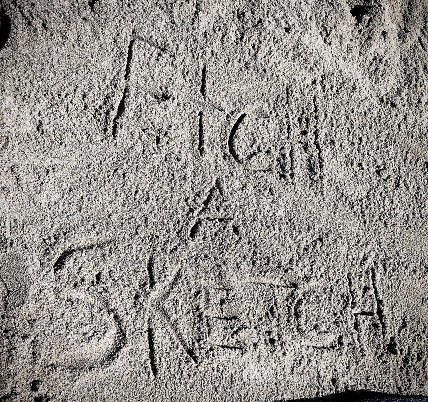 ETCH
A
SKETCH